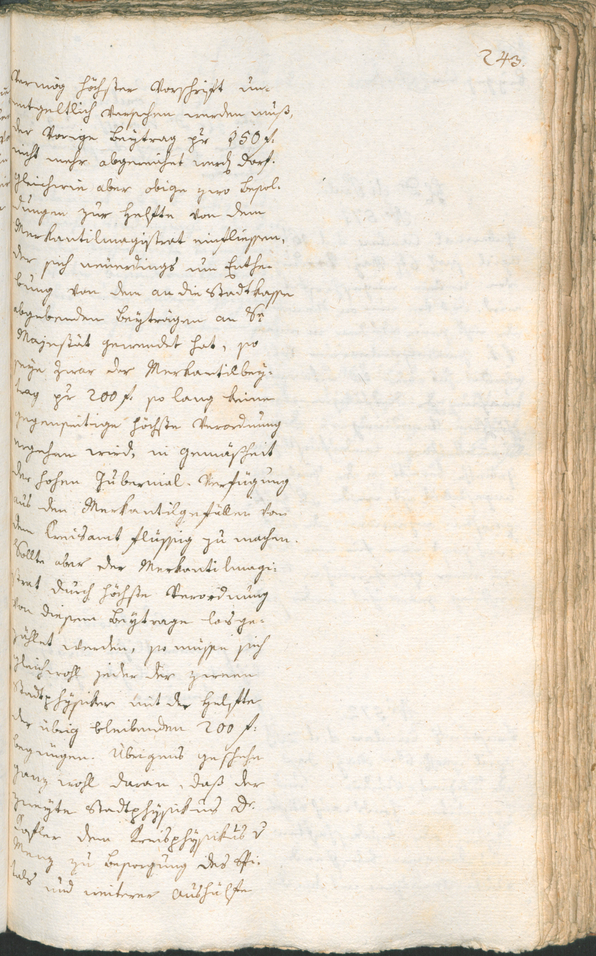 243.
vermög höchster Vorschrift un-
entgeltlich versehen werden muß,
der vorige Beytrag pr 150 f.
nicht mehr abgereicht werden darf.
gleichwie aber obige zwo Besol-
dungen zur Helfte von dem
Merkantilmagistrat einfliessen,
der sich neuerdings um Enthe-
bung von dem an die Stadtkasse
abgebenden Beyträgen an Se
Majestät gewendet hat, so
seye zwar der Merkantilbey-
trag pr 200 f. so lang keine
gegenseitige höchste Verordnung
ergehen wird, in gemäßheit
der hohen Gubernial-Verfügung
aus den Merkantilgefällen von
dem Kreisamt flüssig zu machen.
Sollte aber der Merkantilmagi-
strat durch höchste Verordnung
von diesem Beytrage losge-
zählet werden, so müsse sich
gleichwohl jeder der zween
Stadtphysiker mit der Helfte
der übrig bleibenden 200 f.
begnügen. Übrigens geschehe
ganz wohl daran, daß der
zweyte Stadtphysikus D.
dem Kreisphysikus D
Menz zu Besorgung des Spi-
tals und weiterer Aushülfe